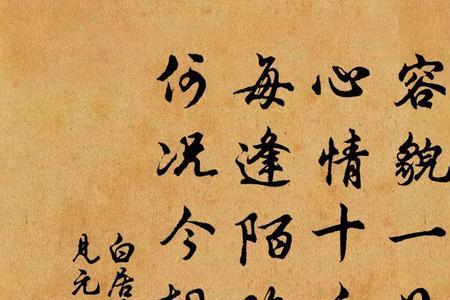 容貌一
心情十
每逢陌
何况今
白居
見元